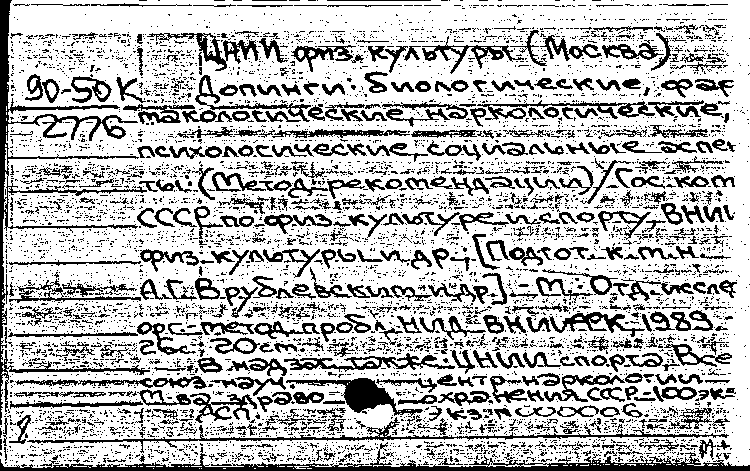 ЦНИИ физ. культуры (Москва)
90-50К Допинги: биологические, фар
2776 макологические, наркологические,
психологические, социальные аспек
ты: (Метод. рекомендации)/Гос. ком
СССР по физ. культуре и спорту, ВНИИ
физ. культуры и др.; [Подгот. к.м.н.
А.Г. Врублевским и др.] - М.: Отд. иссле
орг.-метод. пробл. НИД ВНИИФК, 1989.
26с. 20см
В надзаг. также: ЦНИИ спорта, Все
союз. науч. центр наркологии
М-ва здраво охранения СССР - 100 экз
ДСП. Экз. N 000006